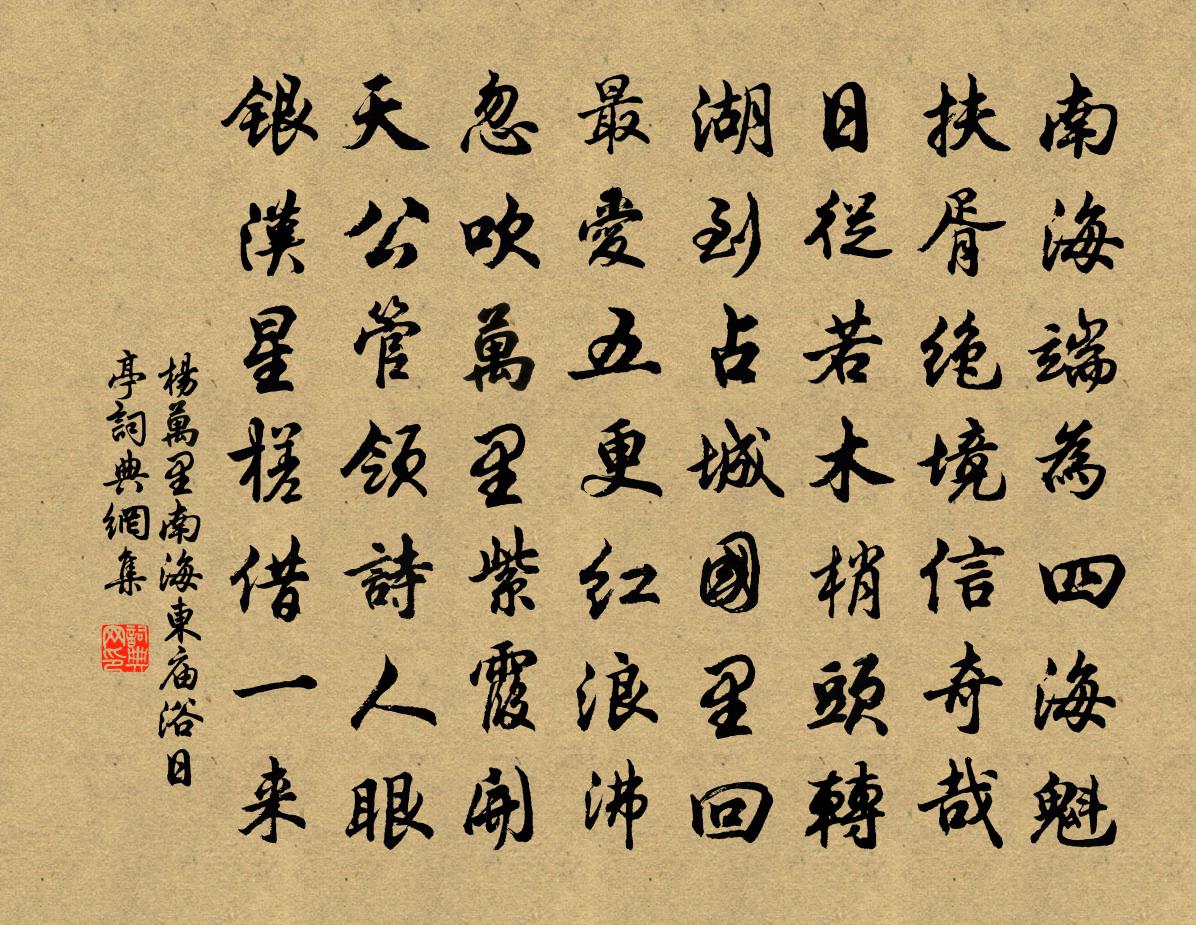 南海端為四海魁
扶胥绝境信奇哉
日從若木梢頭轉
湖到占城國里回
最愛五更红浪沸
忽吹萬里紫霞開
天公管领詩人眼
銀漢星槎借一来
楊萬里南海東庙浴日
亭詞典網集
詞典
网印